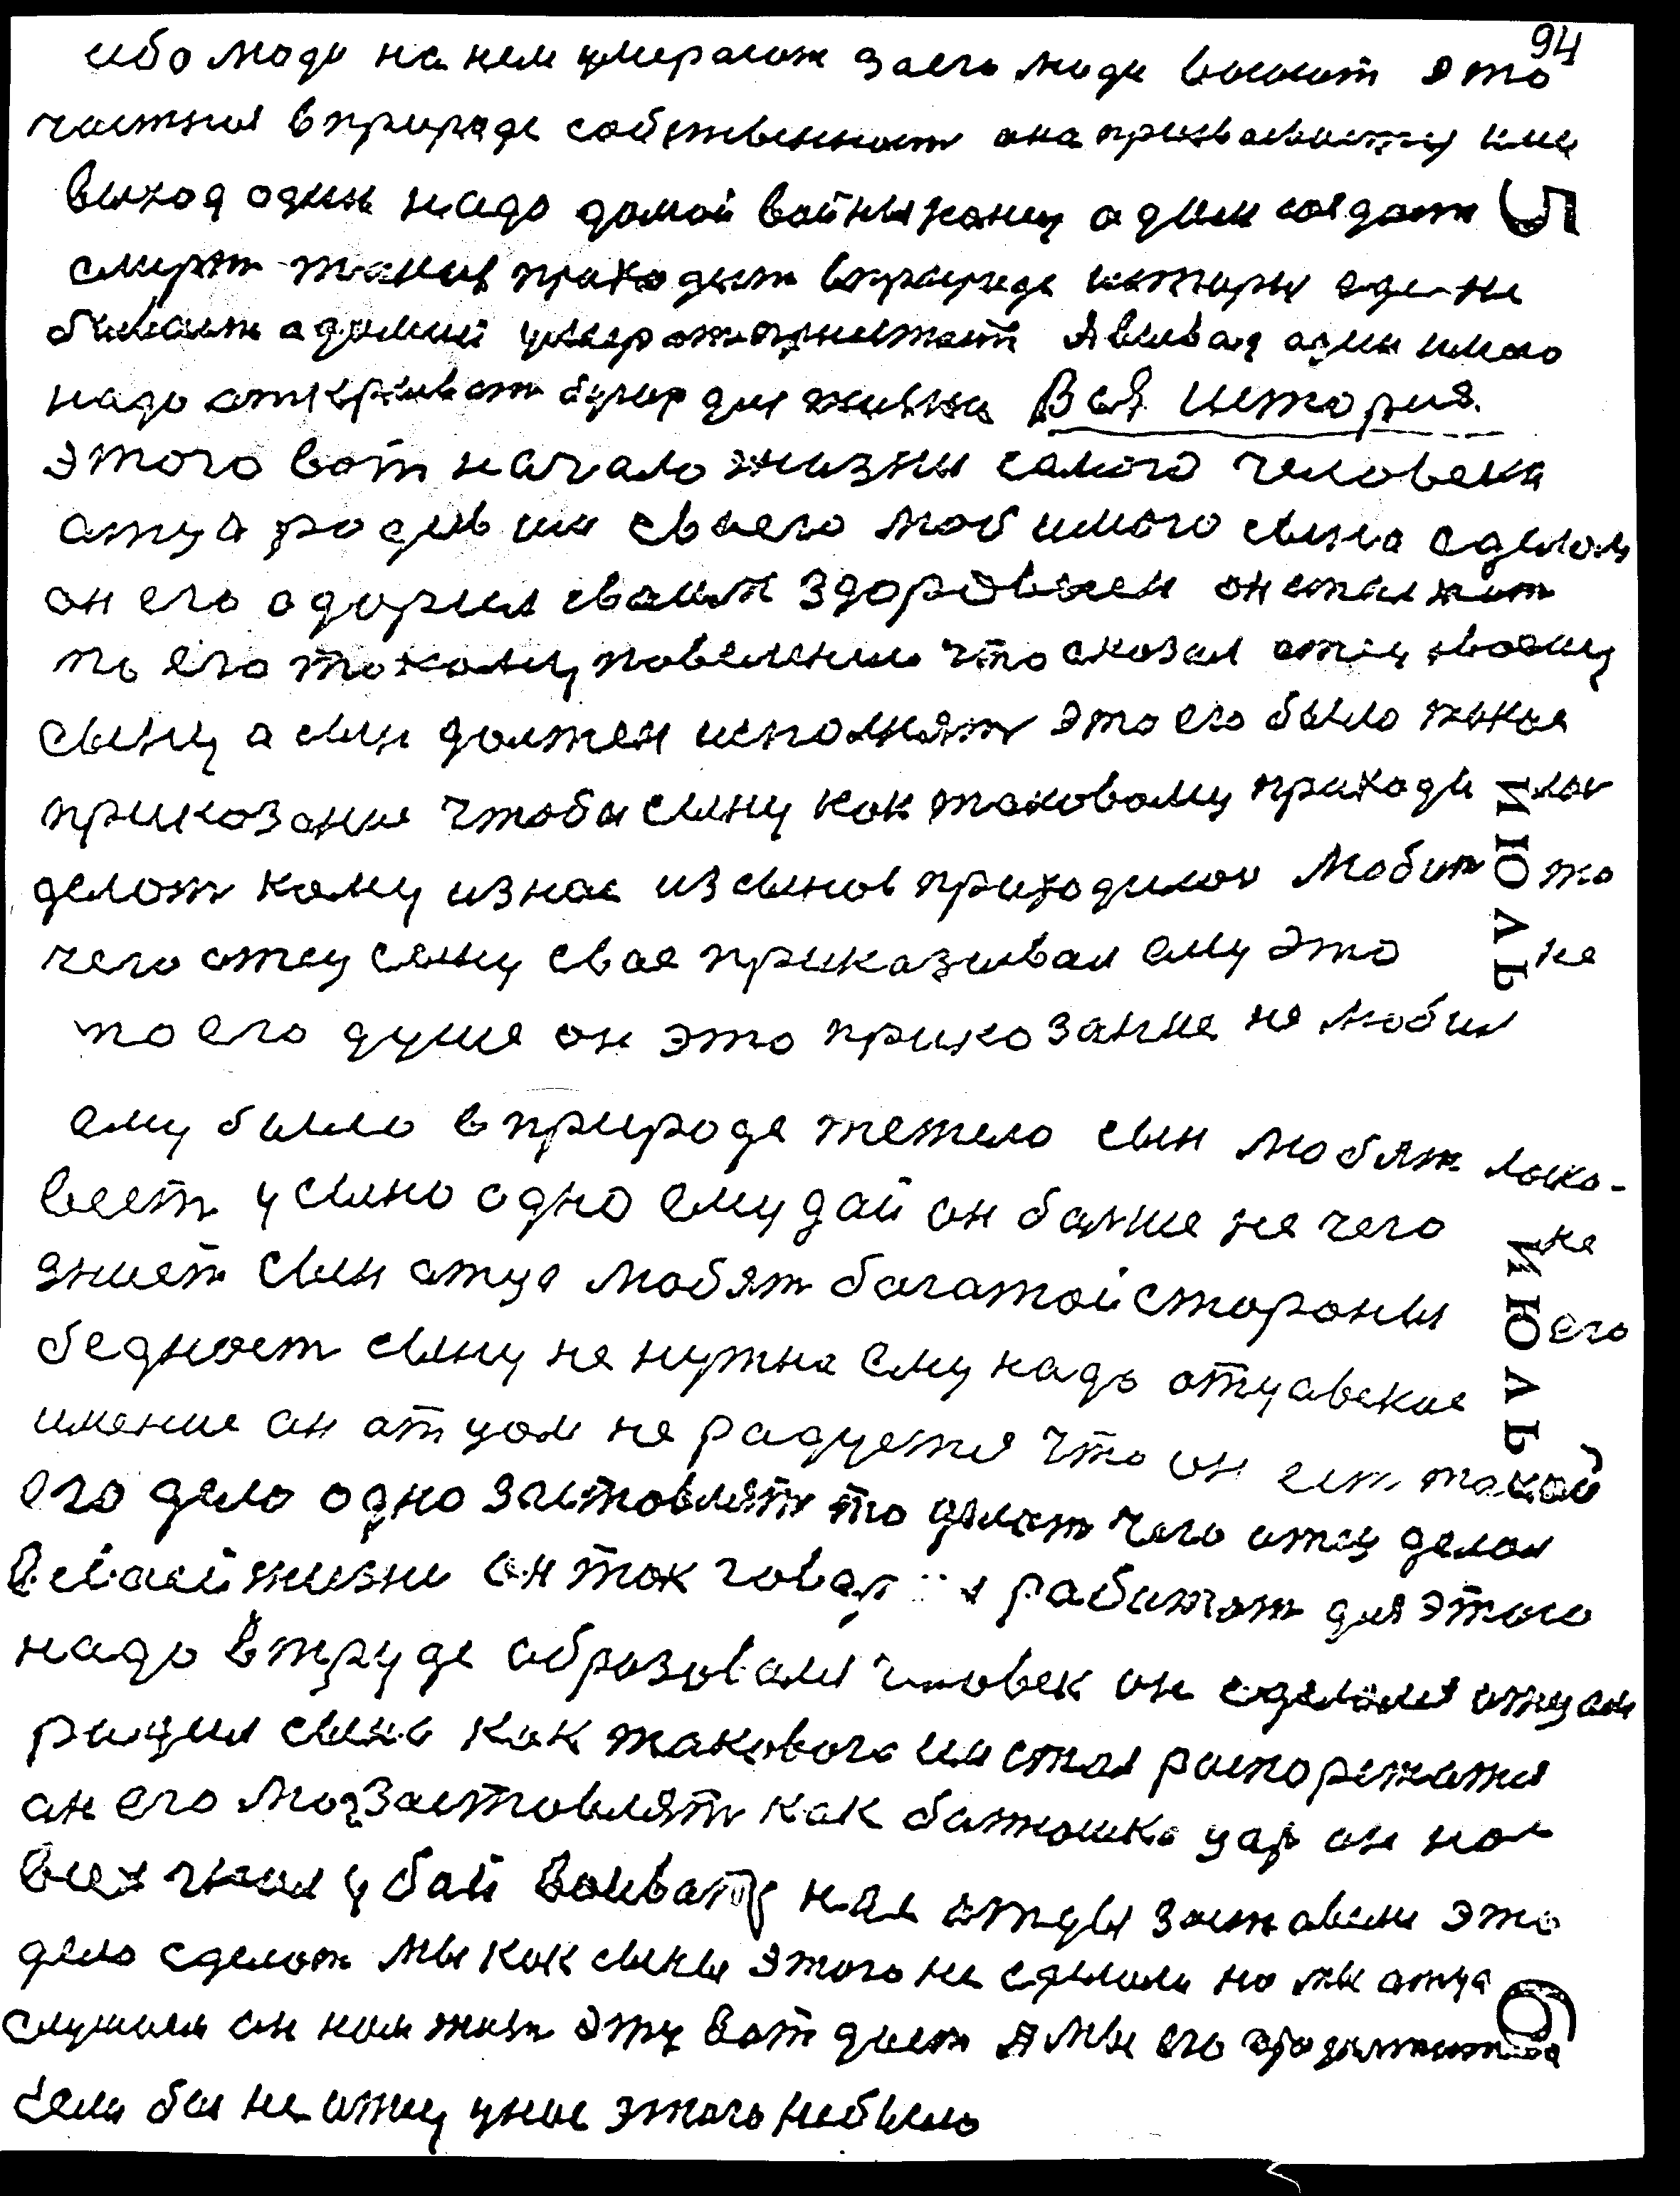 94
ибо люди на нем умирают за его люди воюют это
частная в природе собственност она присваеваетца или
выход один надо домой войны конец один солдат 5
смерт приходит в природе истории
умират Я вывод один имею
надо открыват бугор для жизны Вся история
этого вот начало жизни самого человека
отца родивши своего любимого сына сделали
он его одорил своим здоровием он стал жит
по его такому повелению что сказал отец своему
сыну а сын должен исполнят это его было такое
приказание чтобы сыну как таковому приходилос
делат кому из нас из сынов приходилос любит то
чего отец сыну свое приказывал ему это не
по его душе он это приказание не любил
ему было в природе тежело сын любят
веет у сына одно ему дай он балше не чего не
знает сын отца любят богатой стороны его
бедност сыну не нужна ему надо отцавское
имение он отцом не радуется что он ест такой
его дело одно заставлят то делат чего отец делал
в своей жизни он так говор я работат для этого
надо в труде образовалы человек он сделался отцам
родил сына как такового им стал распорежатся
он его мог заставлят как батюшка цар он на
всех гнал убай воеват нас отцы заставили это
дело сделат мы как сыны этого не сделали но мы отца
слушали он нам жизн эту вот дает А мы его
Если бы не отец у нас этого небыло
ИЮЛЬ
ИЮЛЬ
6